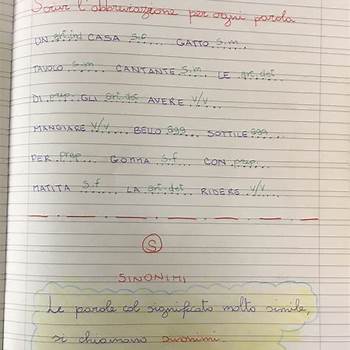 Scrivi l'abbreviazione per ogni parola
UN art.ind CASA s.f GATTO s.m.
TAVOLO s.m CANTANTE s.m LE art.det
DI prep. GLI art.det AVERE v/v
MANGIARE v/v BELLO agg SOTTILE agg
PER prep. GONNA s.f CON prep.
MATITA s.f LA art.det RIDERE v/v
S
SINONIMI
Le parole col significato molto simile,
si chiamano sinonimi.